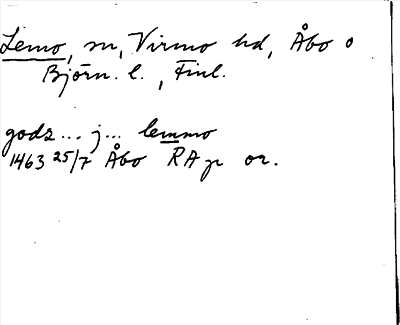 Lemo, sn, Virmo hd, Åbo o
Björn. l., Finl.
godz... j... lemmo
1463 25/7 Åbo RAp or.